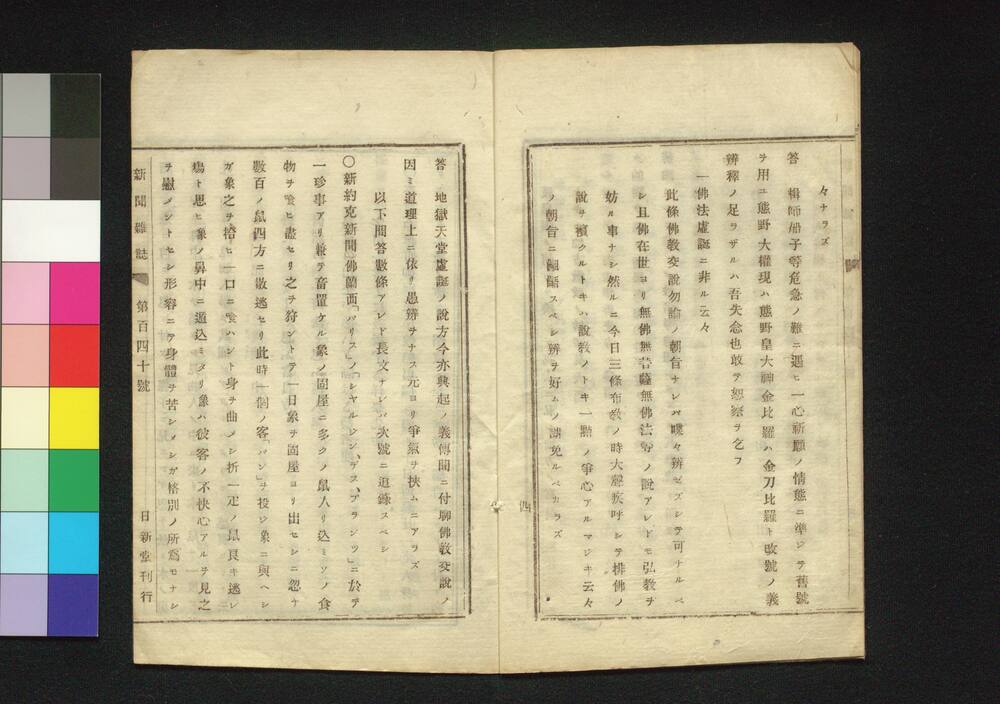 々ナラズ
答 楫師船子等危急ノ難ニ遇ヒ一心祈願ノ情態ニ準ジテ舊號
ヲ用ユ熊野大權現ハ熊野皇大神金比羅ハ金刀比羅ト改號ノ義
辨釋ノ足ラザルハ吾失念也敢テ恕察ヲ乞フ
一佛法虚誕ニ非ル云々
此條佛教交說勿論ノ朝旨ナレバ喋々辨ゼズシテ可ナルベ
シ且佛在世ヨリ無佛無菩薩無佛法等ノ說アレドモ弘敎ヲ
妨ル事ナシ然ルニ今日三條布敎ノ時大聲疾呼シテ排佛ノ
說ヲ擯クルトキハ說敎ノトキ一點ノ爭心アルマジキ云々
ノ朝旨ニ齟齬スベシ辨ヲ好ムノ誚免ルベカラズ
四
答 地獄天堂虛誕ノ說方今亦興起ノ義傳聞ニ付聊佛敎交說ノ
因ミ道理上ニ依リ愚辨ヲナス元ヨリ爭氣ヲ挾ムニアラズ
以下問答數條アレド長文ナレバ次號ニ追錄スベシ
〇新約克新聞佛蘭西「パリス」ノ「シヤルジン、デス、プランツ」ニ於テ
一珍事アリ兼テ畜置ケル象ノ圄屋ニ多クノ鼠入リ込ミソノ食
物ヲ喰ヒ盡セリ之ヲ狩ントテ一日象ヲ圄屋ヨリ出セシニ忽チ
數百ノ鼠四方ニ散逃セリ此時一個ノ客「パン」ヲ投ジ象ニ與ヘシ
ガ象之ヲ拾ヒ一口ニ喰ハント身ヲ曲メシ折一疋ノ鼠良キ逃レ
場ト思ヒ象ノ鼻中ニ遁込ミタリ象ハ彼客ノ不快心アルヲ見之
ヲ慰メントセシ形容ニテ身體ヲ苦シメシガ格別ノ所爲モナシ
新聞雜誌 第百四十號 日新堂刊行